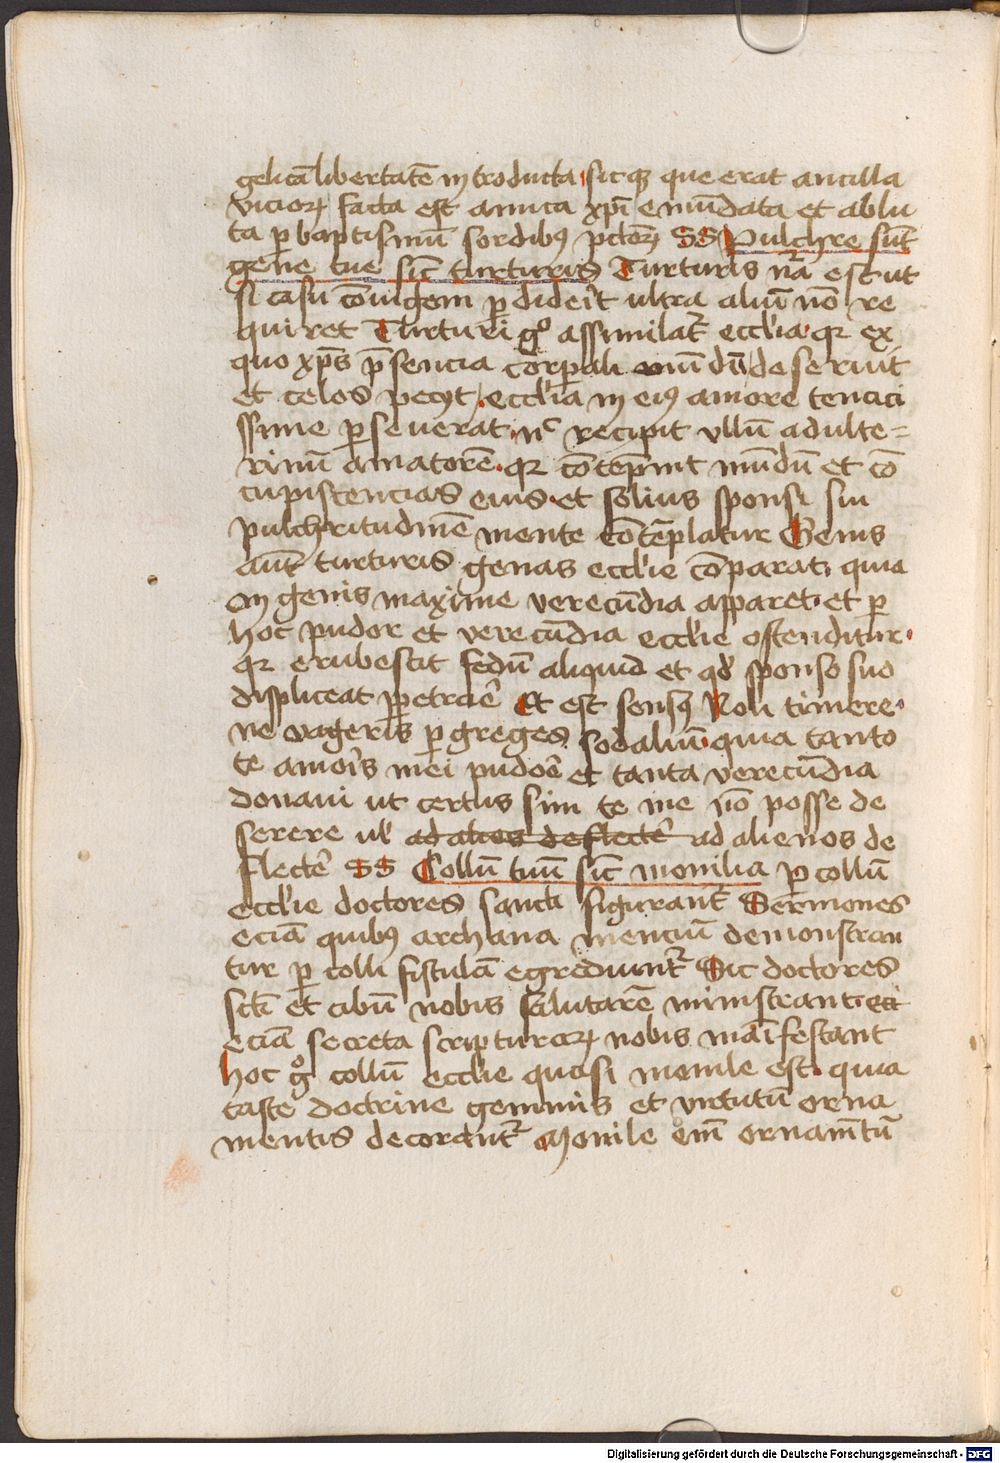 gelicā libertatē introducta sicq; que erat ancilla
vicioꝝ facta est amica xp̄i emūdata et ablu
ta ꝑ baptismū sordibꝰ pctoꝝ SS Pulchre sūt
gene tue sic̄ turturis Turturis nā est ut
si casu cōiugem ꝑdiderit ultra aliū nō re
quiret Turturi gͦ assimilat᷑ eccl'ia qꝛ ex
quo xp̄s p̄sencia corꝑali mūdū deseruit
et celos peciit eccl'ia in eiꝰ amore tenaci
ssime ꝑseuerat nͨ recipit vllū adulte=
rinū amatorē qꝛ cōtēpnit mūdū et cō
cupiscencias eius et solius sponsi sui
pulchritudinē mente cōtēplatur Genis
aut̄ turturis genas eccl'ie cōparat quia
in genis maxime verecūdia apparet et ꝑ
hoc pudor et verecūdia eccl'ie ostenditur
qꝛ erubescit fedū aliquid et qd' sponso suo
displiceat ꝑpetrare Et est sensꝰ Noli timere
ne vageris ꝑ greges sodaliū quia tanto
te amoris mei pudore et tanta verecūdia
donaui ut certus sim te me nō posse de
serere ul' ad alios deflectē ad alienos de
flectē SS Collū tuū sic̄ monilia ꝑ collū
eccl'ie doctores sancti figurant᷑ Sermones
eciā quibꝰ archana menciū demonstran
tur ꝑ colli fistulā egrediunt᷑ Sic doctores
sc̄ti et cibū nobis salutarē ministrant et
eciā secreta scripturaꝝ nobis māifestant
hoc gͦ collū eccl'ie quasi monile est quia
caste doctrine gemmis et virtutū orna
mentis decorant᷑ Monile em̄ ornamētū
Digitalisierung gefördert durch die Deutsche Forschungsgemeinschaft - DFG